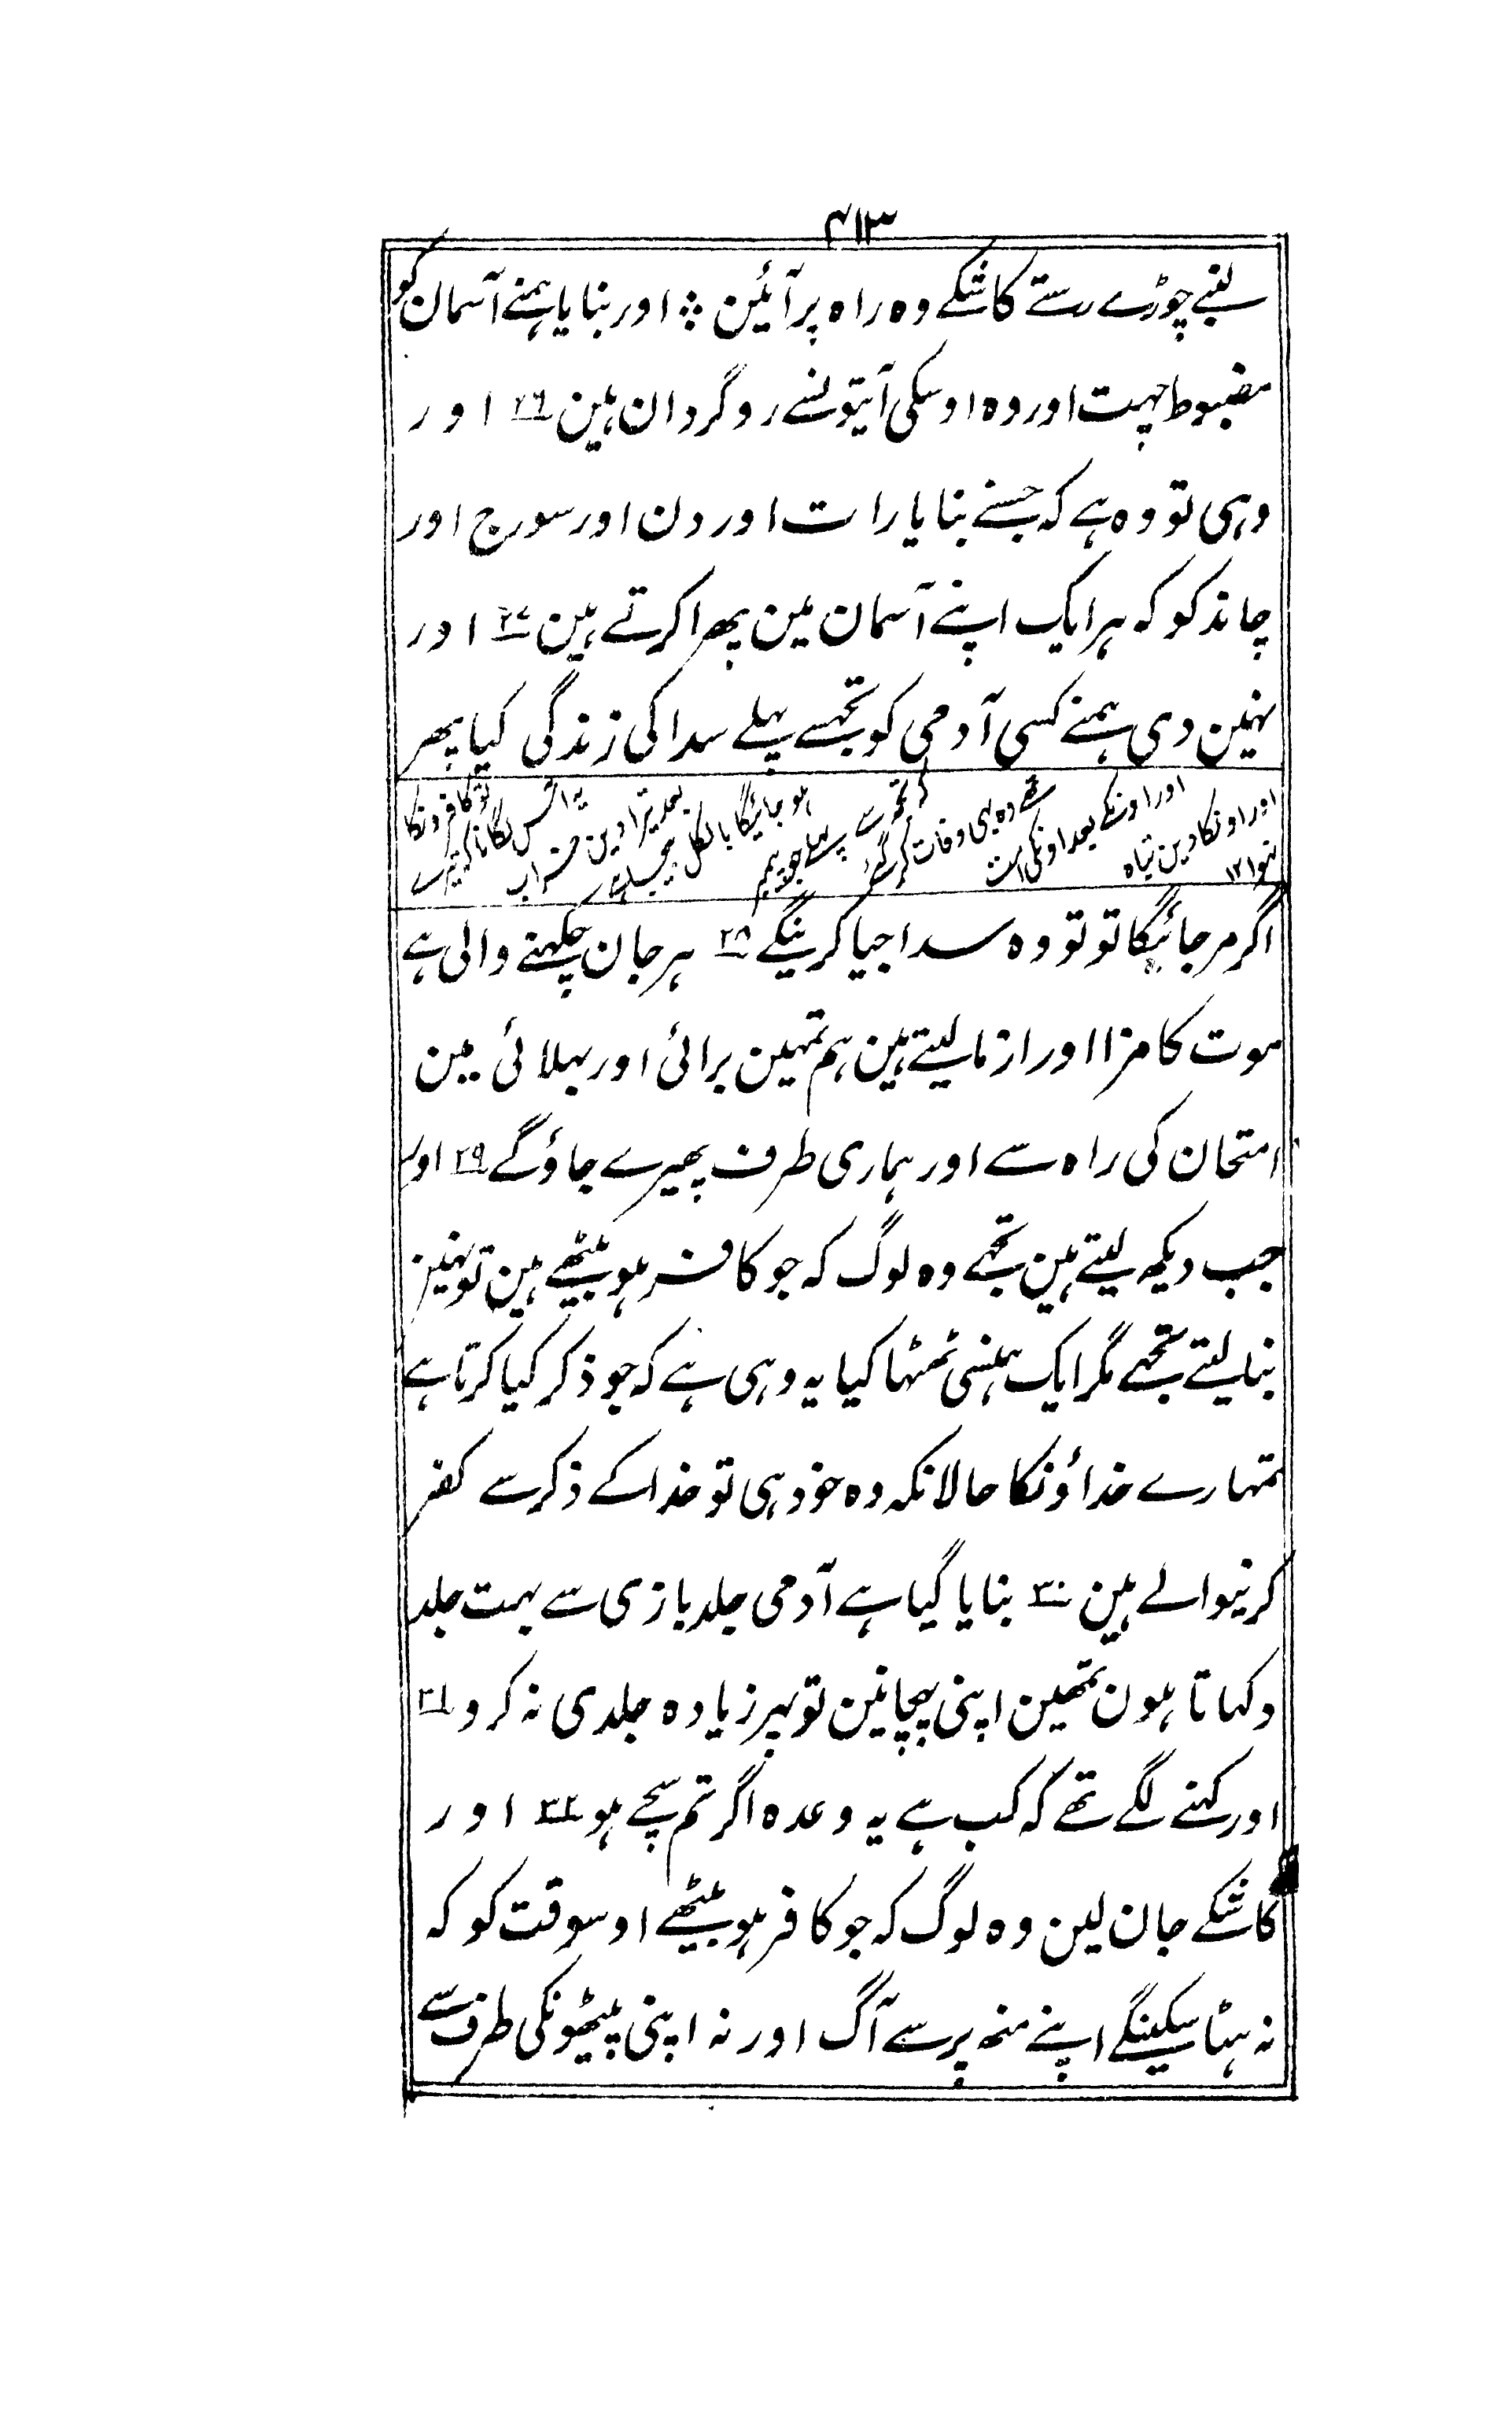 ۴۱۳
لنبے چوڑے رستے کاشکے وہ راہ پر آئین ؞ اور بنایا ہمنے آسمان کو
مضبوط چہت اور وہ اوسکی آیتونسے روگردان ہین ۲۶ اور
وہی تو وہ ہے کہ جسنے بنایا رات اور دن اور سورج اور
چاند کو کہ ہر ایک اپنے آسمان مین پھرا کرتے ہین ۲۷ اور
نہین دی ہمنے کسی آدمی کو تجھسے پہلے سدا کی زندگی کیا پھر
تو کافرونکا
یہ آس لگانا کہ تیرے
بعد تیرا دین خراب
ہو جائیگا بالکل
کہ تجھ سے پہلے جو پیمبر
تھے وہ بھی وفات کر گئے
اور اونکے بعد اونکی امت
اور اونکا دین تباہ
نہوا ۱۲
اگر مر جائیگا تو تو وہ سدا جیا کرینگے ۲۸ ہر جان چکہنے والی ہے
موت کا مزا اور ازما لیتے ہین ہم تمہین برائی اور بہلائی مین
امتحان کی راہ سے اور ہماری طرف پھیرے جاؤگے ۲۹ اور
جب دیکہ لیتے ہین تجھے وہ لوگ کہ جو کافر ہو بیٹھے ہین تو نہین
بنا لیتے تجھے مگر ایک ہنسی ٹھٹھا کیا یہ وہی ہے کہ جو ذکر کیا کرتا ہے
تمہارے خداؤنکا حالانکہ وہ خود ہی تو خدا کے ذکر سے کفر
کرنیوالے ہین ۳۰ بنایا گیا ہے آدمی جلد بازی سے بہت جلد
دکہاتا ہون تمھین اپنی پہچانین تو پہر زیادہ جلدی نہ کرو ۳۱
اور کہنے لگے تھے کہ کب ہے یہ وعدہ اگر تم سچے ہو ۳۲ اور
کاشکے جان لین وہ لوگ کہ جو کافر ہو بیٹھے اوسوقت کو کہ
نہ ہٹا سکینگے اپنے منھ پر سے آگ اور نہ اپنی پیٹھونکی طرف سے